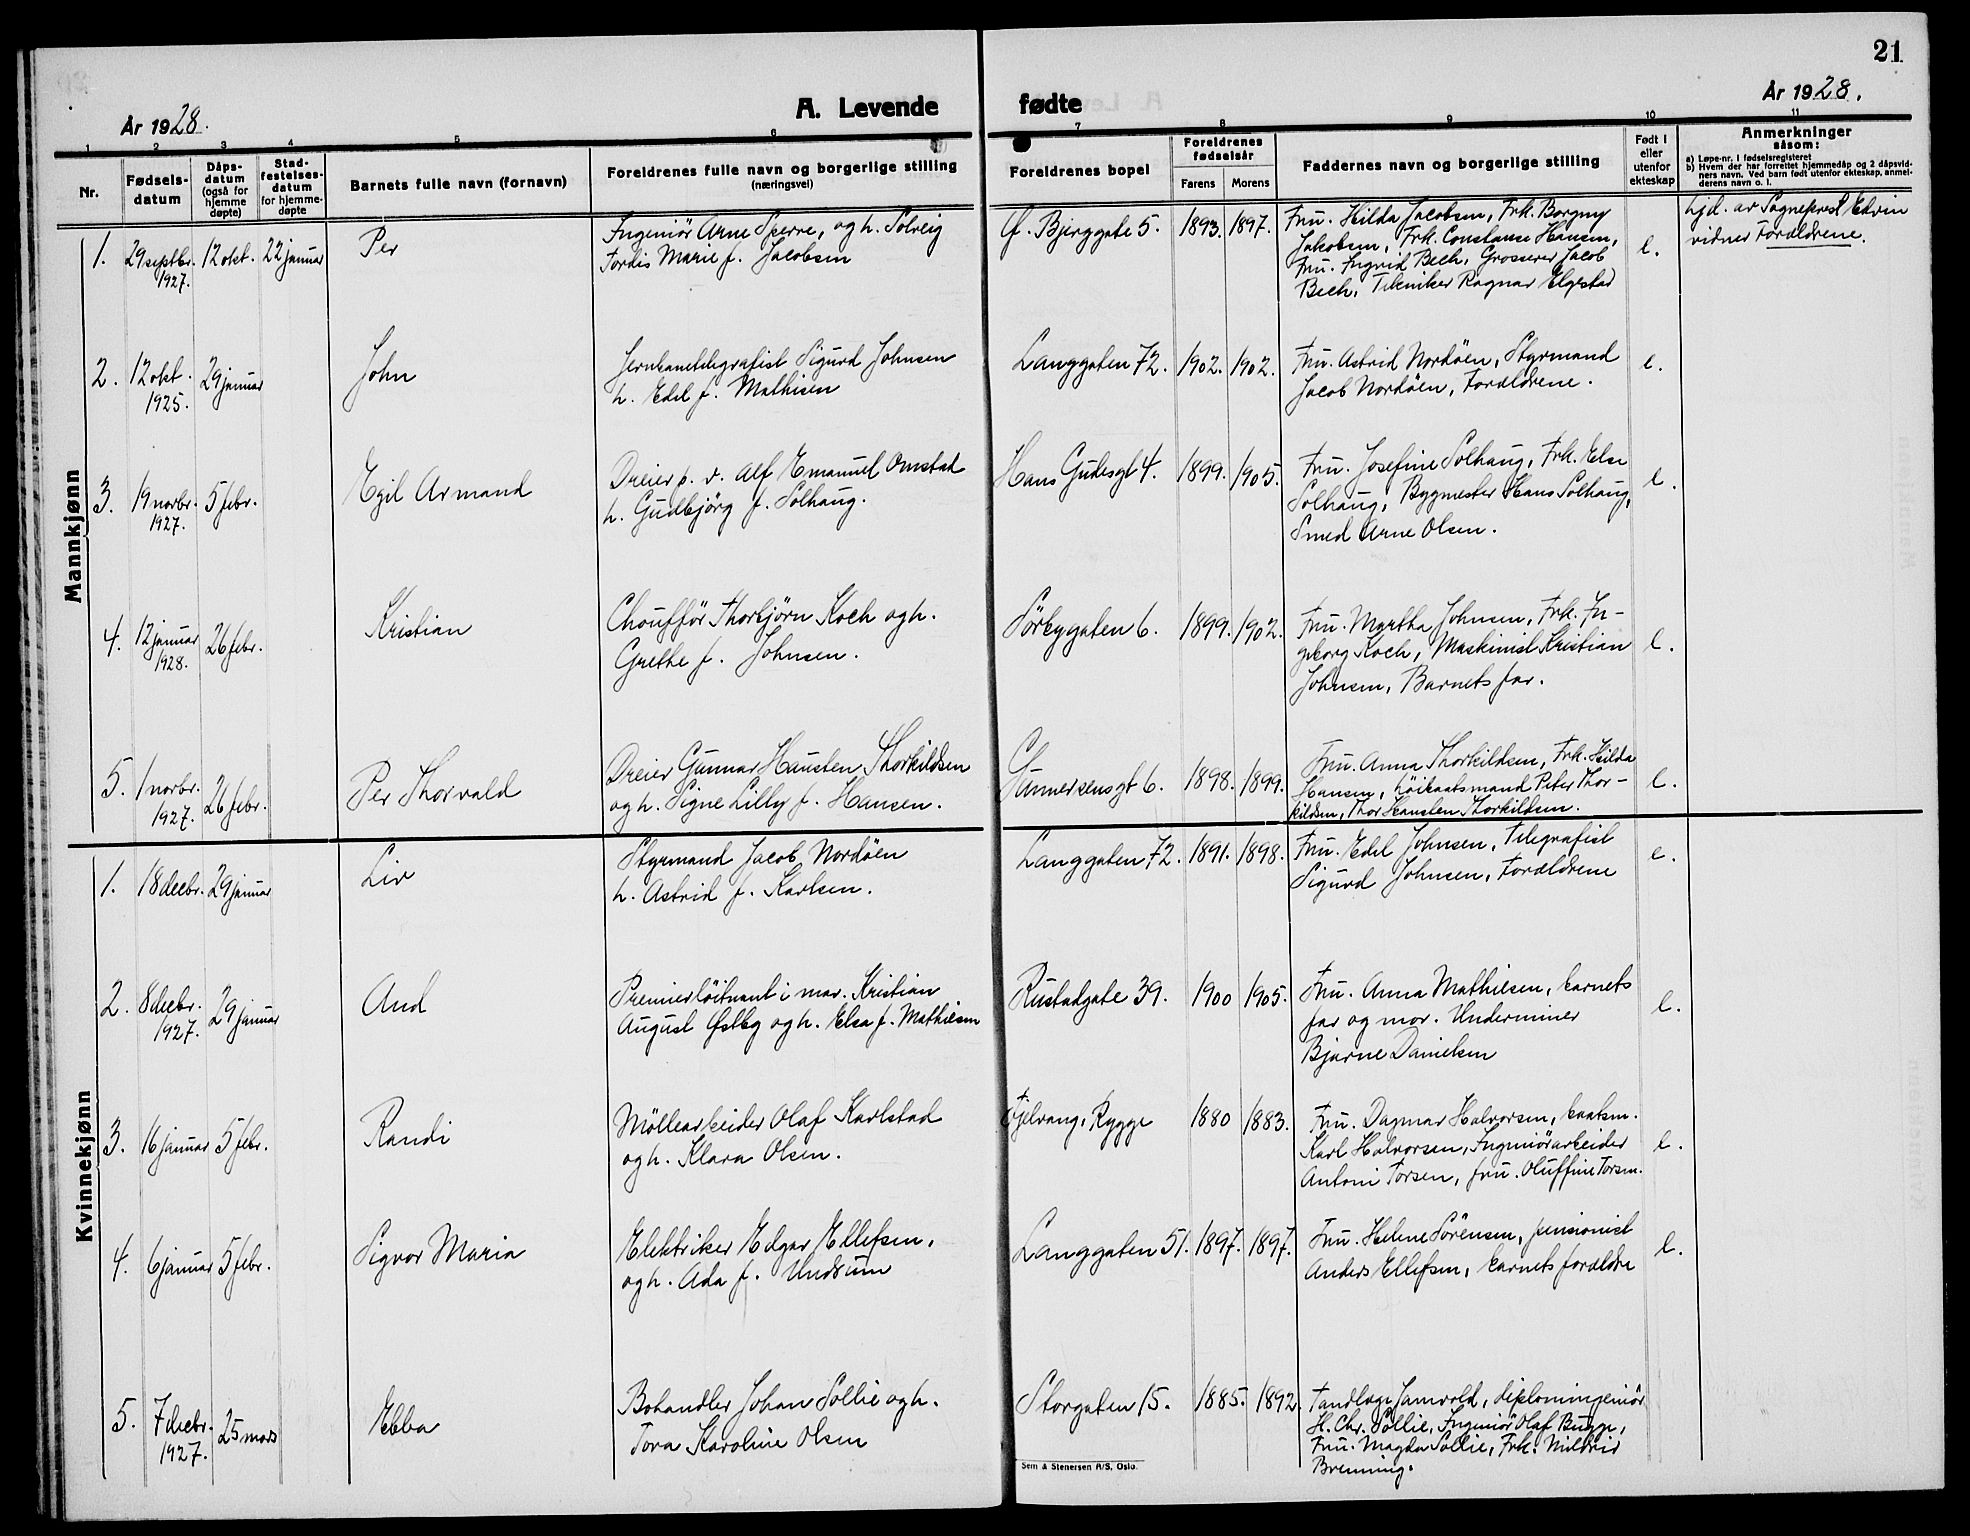 21
År 1928.
A. Levende fødte
År 1928.
1 2 3 4 5 6 7 8 9 10 11
Nr.
Fødsels-
datum
Dåps-
datum
(også for
hjemme
døpte)
Stad-
festelses-
datum
for hjemme-
døpte
Barnets fulle navn (fornavn)
Foreldrenes fulle navn og borgerlige stilling
(næringsvei)
Foreldrenes bopel
Foreldrenes
fødselsår
Farens Morens
Faddernes navn og borgerlige stilling
Født i
eller
utenfor
ekteskap
Anmerkninger
såsom:
a) Løpe-nr. i fødselsregisteret
b) Hvem der har forrettet hjemmedåp og 2 dåpsvid-
ners navn. Ved barn født utenfor ekteskap, anmel-
derens navn o. l.
Mannkjønn
1. 29 septbr. 1927. 12 okt. 22 januar
Per
Ingeniör Arne Sperre, og h. Solveig
Tordis Marie f. Jacobsen
Bjerggate 5. 1893. 1897.
Fru. Hilda Jacobsen, Frk. Borgny
Jakobsen, Frk. Constanse Hansen,
Fru. Ingrid Bech, Grosserer Jacob
Bech, Tekniker Ragnar Elgestad
e.
hjd. av Sogneprest Edvin
vidner Forældrene.
2. 12 okt. 1925. 29 januar
John
Jernbanetelegrafist Sigurd Johnsen
h. Edel f. Mathisen
Langgaten 72. 1902. 1902.
Fru. Astrid Nordöen, Styrmand
Jacob Nordöen, Forældrene.
e.
3. 19 novbr. 1927. 5 febr.
Egil Armand
Dreier p. v. Alf Emanuel Omstad
h. Gudbjörg f. Solhaug.
Hans Gudesgt 4. 1899. 1905.
Fru. Josefine Solhaug, Frk. Else
Solhaug, Bygmester Hans Solhaug,
Smed Arne Olsen.
e.
4. 12 januar 1928. 26 febr.
Kristian
Choufför Thorbjörn Koch og h.
Grethe f. Johnsen.
Sörbygaten 6. 1899. 1902.
Fru. Martha Johnsen, Frk. In-
geborg Koch, Maskinist Kristian
Johnsen, Barnets far.
e.
5. 1 novbr. 1927. 26 febr.
Per Thorvald
Dreier Gunnar Hausten Thorkildsen
og h. Signe Lilly f. Hansen.
Gunnersensgt 6. 1898. 1899.
Fru. Anna Thorkildsen, Frk. Hilda
Hansen, Peter Thor-
kildsen, Thor Hausten Thorkildsen.
e.
Kvinnekjønn
1. 18 decbr. 29 januar
Liv
Styrmand Jacob Nordöen
h. Astrid f. Karlsen.
Langgaten 72. 1891. 1898.
Fru. Edel Johnsen, Telegrafist
Sigurd Johnsen, Forældrene
e.
2. 8 decbr. 1927. 29 januar
Aud
Premierlöitnant i mar. Kristian
August Østby og h. Elsa f. Mathiesen
Rustadgate 39. 1900 1905.
Fru. Anna Mathiesen, barnets
far og mor. Underminer
Bjarne Danielsen
e.
3. 16 januar 5 febr.
Randi
Möllearbeider Olaf Karlstad
og h. Klara Olsen.
Fjelvang, Rygge 1880 1883.
Fru. Dagmar Halvorsen, baatsm.
Karl Halvorsen, Ingeniörarbeider
Antoni Torsen, fru. Oluffine Torsen.
e.
4. 6 januar 5 febr.
Sigvor Maria
Elektriker Edgar Ellefsen,
og h. Ada f. Undrum
Langgaten 51. 1897. 1897.
Fru. Helene Sörensen, pensionist
Anders Ellefsen, barnets forældre
e.
5. 7 decbr. 1927. 25 mars
Ebba
Bohandler Johan Sollie og h.
Tora Karoline Olsen
Storgaten 15. 1885. 1892.
Tandlæge Jamvold, diplomingeniör
H. Chr. Sollie, Ingeniör Olaf Bugge,
Fru. Magda Sollie, Frk. Mildrid
Brenning.
Sem & Stenersen A/S, Oslo.